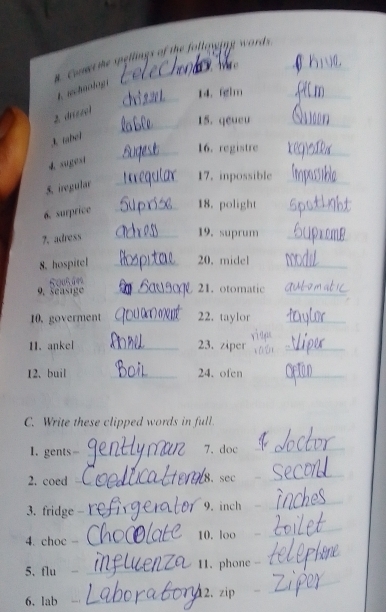 B. Correct the spellings of the following words.
1. technologi
2. drizzel drizzel
3. tabel table
4. sugest sugest
5. iregular irregular
6. surprice Suprise
7. adress adress
8. hospitel Hospital
9. seasige Sausage
10. goverment
11. ankel
12. buil Boil
14. felm film
15. qeueu Queen
16. registre register
17. inpossible impossible
18. polight spotlight
19. suprum supreme
20. midel model
21. otomatic automatic
22. taylor taylor
23. ziper ziper
24. ofen
C. Write these clipped words in full.
1. gents - gentlyman
2. coed - Coedicational
3. fridge - refirgerator
4. choc - Chocolate
5. flu - influenza
6. lab - Laboratory
7. doc doctor
8. sec - second
9. inch - inches
10. loo - toilet
11. phone - telephone
12. zip - Ziper